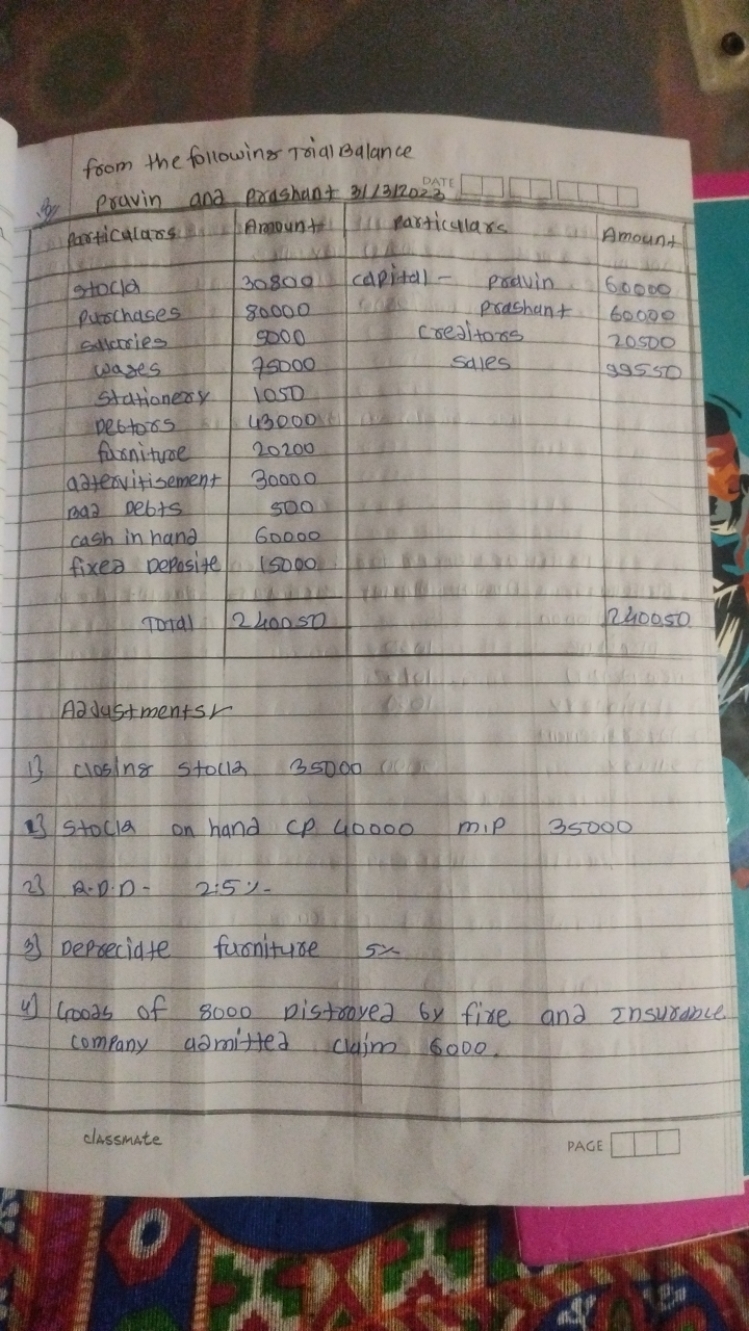 from the following Trial Balance
DATE
Q) Pravin and Prashant 31/3/2023
Particulars Amount Particulars Amount
Stock 30800 capital - pravin 60000
purchases 80000 prashant 60000
salaries 5000 creditors 20500
wages 75000 sales 99550
stationery 1050
Debtors 43000
furniture 20200
adtervitisement 30000
Bad Debts 500
cash in hand 60000
fixed Deposite 15000
Total 240050 240050
Adjustments
1) closing stock 35000
1) stock on hand CP 40000 m.p 35000
2) R.D.D - 2.5 %
3) Depreciate furniture 5%
4) Goods of 8000 Distroyed by fire and Insurance
company admitted claim 6000.
classmate
PAGE